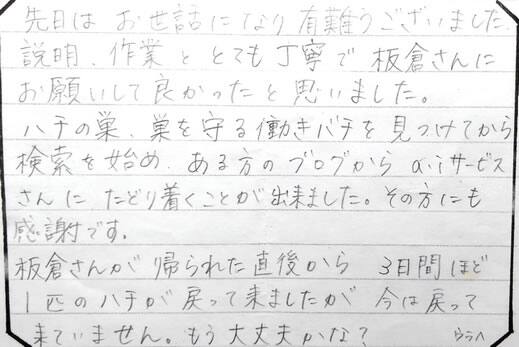 先日は お世話になり 有難うございました。
説明、作業と とても丁寧で 板倉さんに
お願いして良かったと思いました。
ハチの巣、巣を守る働きバチを見つけてから
検索を始め、ある方のブログから a.iサービス
さんに たどり着くことが出来ました。その方にも
感謝です。
板倉さんが 帰られた直後から 3日間ほど
1匹のハチが戻って来ましたが 今は戻って
来ていません。もう大丈夫かな? ウラヘ